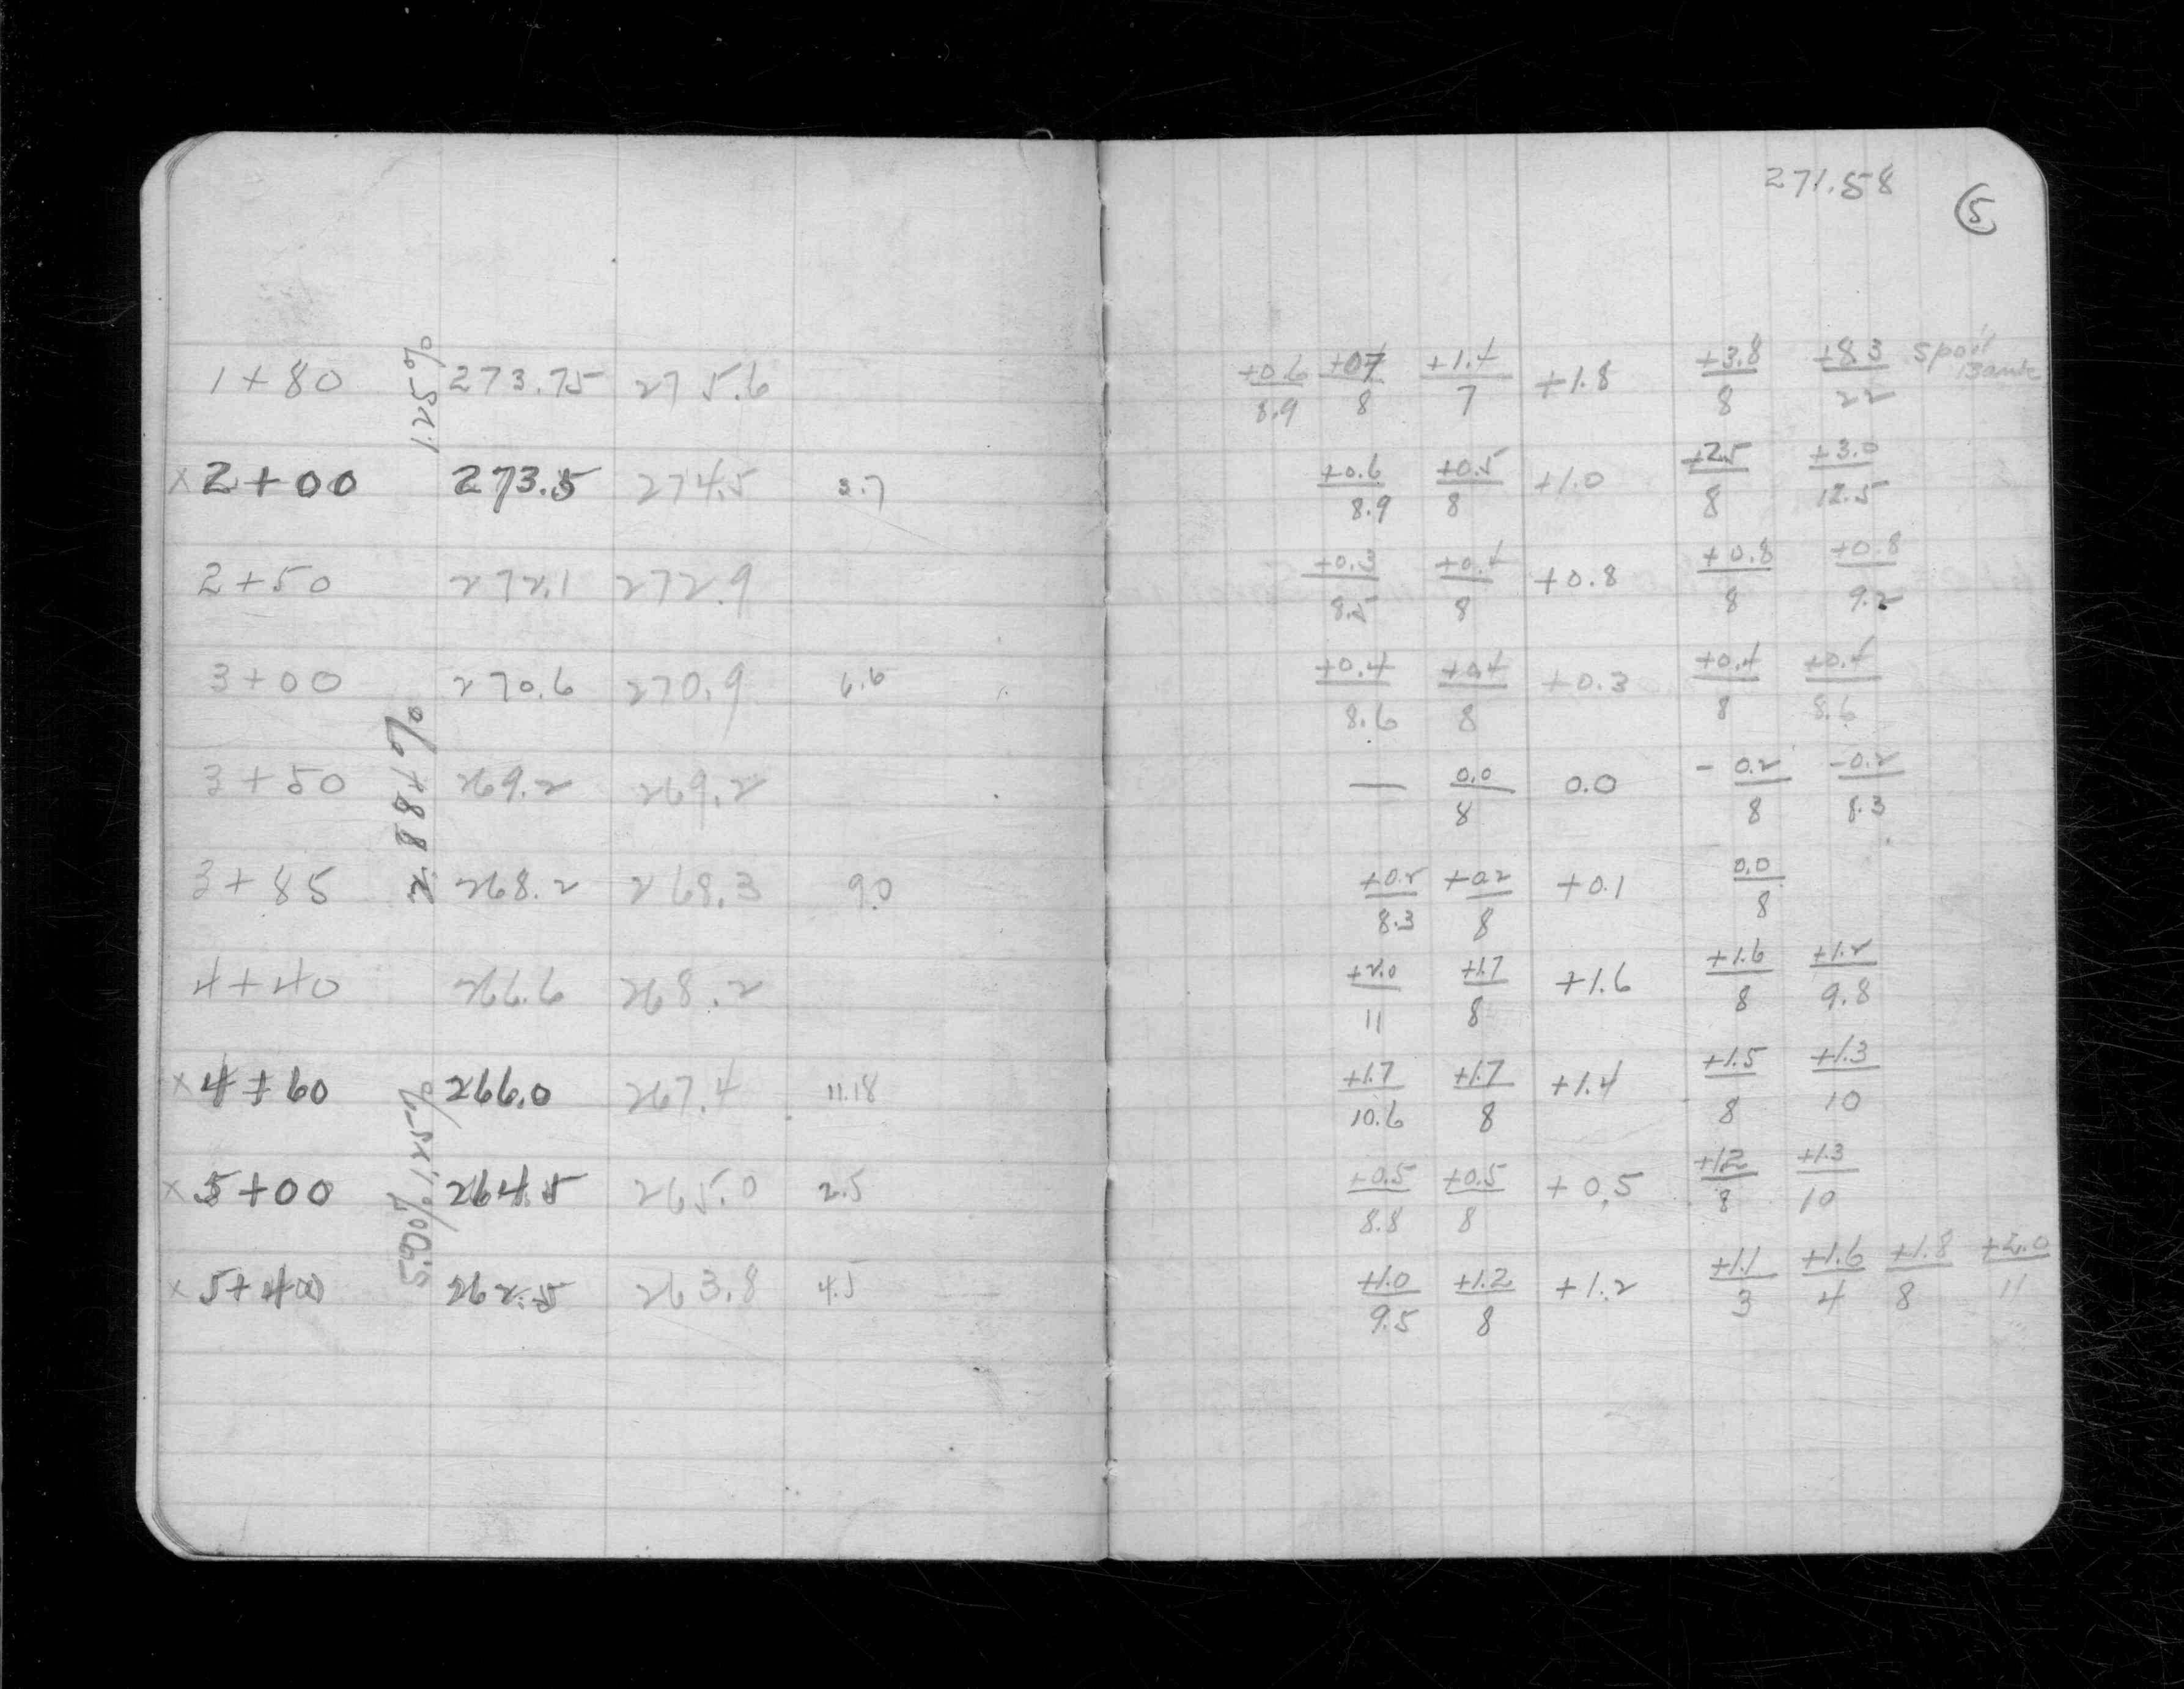 271.58
5
1+80 1.25% 273.75 275.6
+0.6/8.9 +0.7/8 +1.4/7 +1.8 +3.8/8 +8.3/22 Spoil Bank
x 2+00 273.5 274.5 3.7
+0.6/8.9 +0.5/8 +1.0 +2.5/8 +3.0/12.5
2+50 272.1 272.9
+0.3/8.5 +0.4/8 +0.8 +0.8/8 +0.8/9.2
3+00 270.6 270.9 6.6
+0.4/8.6 +0.4/8 +0.3 +0.4/8 +0.4/8.6
3+50 2.88+% 269.2 269.2
— 0.0/8 0.0 -0.2/8 -0.2/8.3
3+85 268.2 268.3 9.0
+0.2/8.3 +0.2/8 +0.1 0.0/8
4+40 266.6 268.2
+2.0/11 +1.7/8 +1.6 +1.6/8 +1.2/9.8
x 4+60 266.0 267.4 11.18
+1.7/10.6 +1.7/8 +1.4 +1.5/8 +1.3/10
x 5+00 264.5 265.0 2.5
+0.5/8.8 +0.5/8 +0.5 +1.2/8 +1.3/10
x 5+40 5.00% 262.5 263.8 4.5
+1.0/9.5 +1.2/8 +1.2 +1.1/3 +1.6/4 +1.8/8 +2.0/11